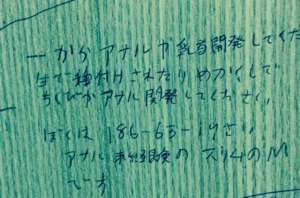 一からアナルか乳首開発してくだ
生で種付けされたり めすイキして
ちくびかアナル開発してください。
ぼくは 186-63-19さい
アナル未経験の スリムのM
です